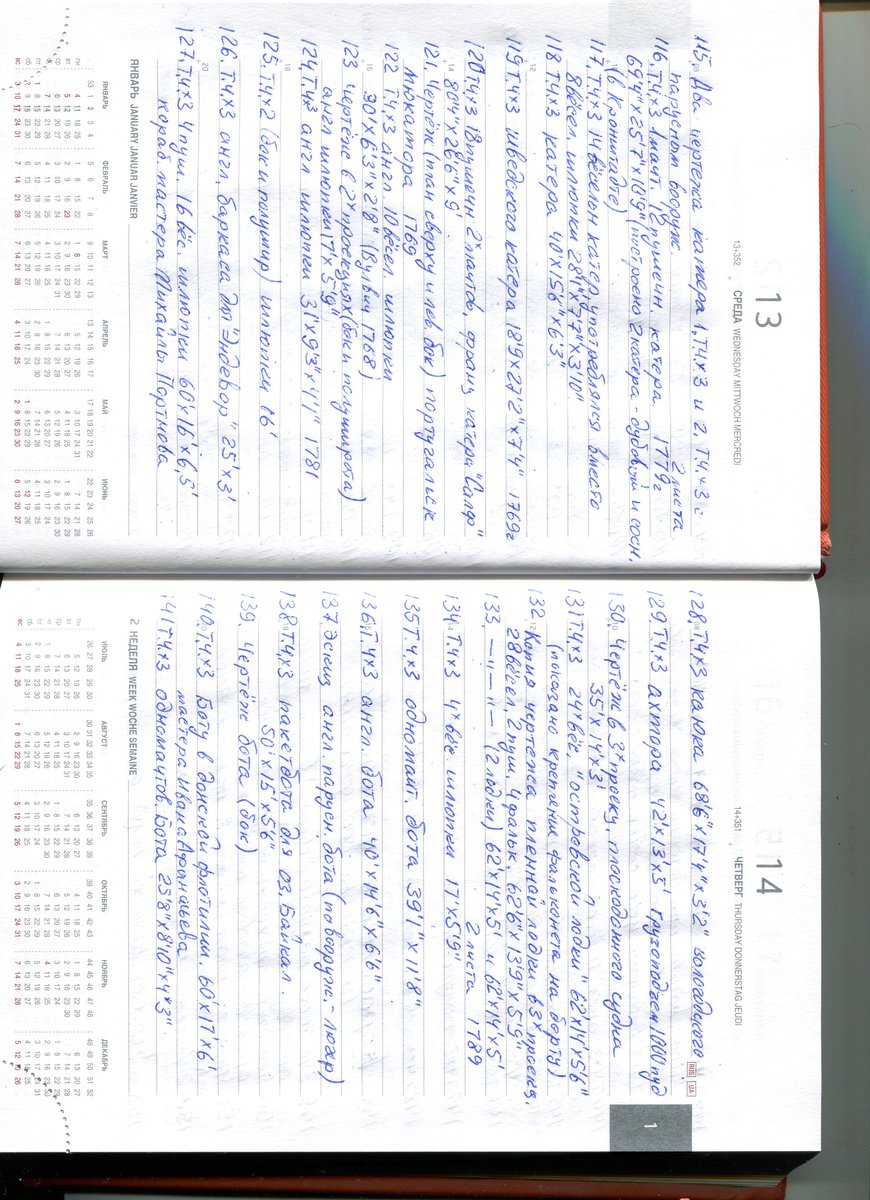 13
13+352 СРЕДА WEDNESDAY MITTWOCH MERCREDI
115. Два чертежа катера 1. Т.Ч.×3 и 2. Т.Ч.×3 с
парусным вооруж. 2 листа
116. Т.Ч.×3 1 мачт. 12 пушечн. катера 1779г
69'4"×25'7"×10'9" (построено 2 катера - дубовый и сосн.
(в Кронштадте)
117. Т.Ч.×3 14 вёсельн катер, употреблялся вместо
8 вёсел. шлюпки 28'1"×7'7"×3'10"
118 Т.Ч.×3 катера 40'×15'6"×6'3"
12
119 Т.Ч.×3 шведского катера 18'9×27'2"×7'4" 1769г
120 Т.Ч.×3 18 пушечн 2х мачтов. франц катера "Салф"
14 80'4"×26'6"×9'
121. Чертёж (план сверху и лев. бок) португальск
мюкатора 1769
122 Т.Ч.×3 англ. 10 вёсел. шлюпки
16 30'×6'3"×2'8" (Вулвич 1768)
123 чертёж в 2х проекциях (бок и полуширота)
англ шлюпки 17'×5'9"
124. Т.Ч.×3 англ шлюпки 31'×9'3"×4'1" 1781
18
125. Т.Ч.×2 (бок и полушир) шлюпки 16'
126. Т.Ч.×3 англ. баркаса для "Эндевор" 25'×3'
20
127. Т.Ч.×3 4 пуш. 16 вёс. шлюпки 60'×16'×6,5'
кораб. мастера Михайлы Портнова
ЯНВАРЬ JANUARY JANUAR JANVIER
ЯНВАРЬ ФЕВРАЛЬ МАРТ АПРЕЛЬ МАЙ ИЮНЬ
14
14+351 ЧЕТВЕРГ THURSDAY DONNERSTAG JEUDI
128. Т.Ч.×3 каюка 68'6"×17'4"×3'2" вологодского
RUS UA
1
129. Т.Ч.×3 ахтора 42'×13'×5' грузоподъем 1000 пуд
130. Чертёж в 3х проекц. плоскодонного судна
35'×14'×3'
131 Т.Ч.×3 24х вёс. "островской лодки" 62'×14'×5'6"
(показано крепление фальконета на борту)
132. Копия чертежа пленной лодки в 3х проекц.
28 вёсел, 2 пуш. 4 фальк. 62'6"×13'9"×5'9"
133. —"—"— (2 лодки) 62'×14'×5' и 62'×14'×5'
2 листа 1789
134 Т.Ч.×3 4х вёс. шлюпки 17'×5'9"
135 Т.Ч.×3 одномачт. бота 39'1"×11'8"
136. Т.Ч.×3 англ. бота 40'×14'6"×6'6"
137. Эскиз англ. парусн. бота (по вооруж. - люгер)
138 Т.Ч.×3 пакетбота для оз. Байкал.
50'×15'×5'6"
139. Чертёж бота (бок)
140. Т.Ч.×3 Боту в донской флотилии. 60'×17'×6'
мастера Ивана Афанасьева
141 Т.Ч.×3 одномачтов. Бота 25'8"×8'10"×4'3"
2 НЕДЕЛЯ WEEK WOCHE SEMAINE
ИЮЛЬ АВГУСТ СЕНТЯБРЬ ОКТЯБРЬ НОЯБРЬ ДЕКАБРЬ